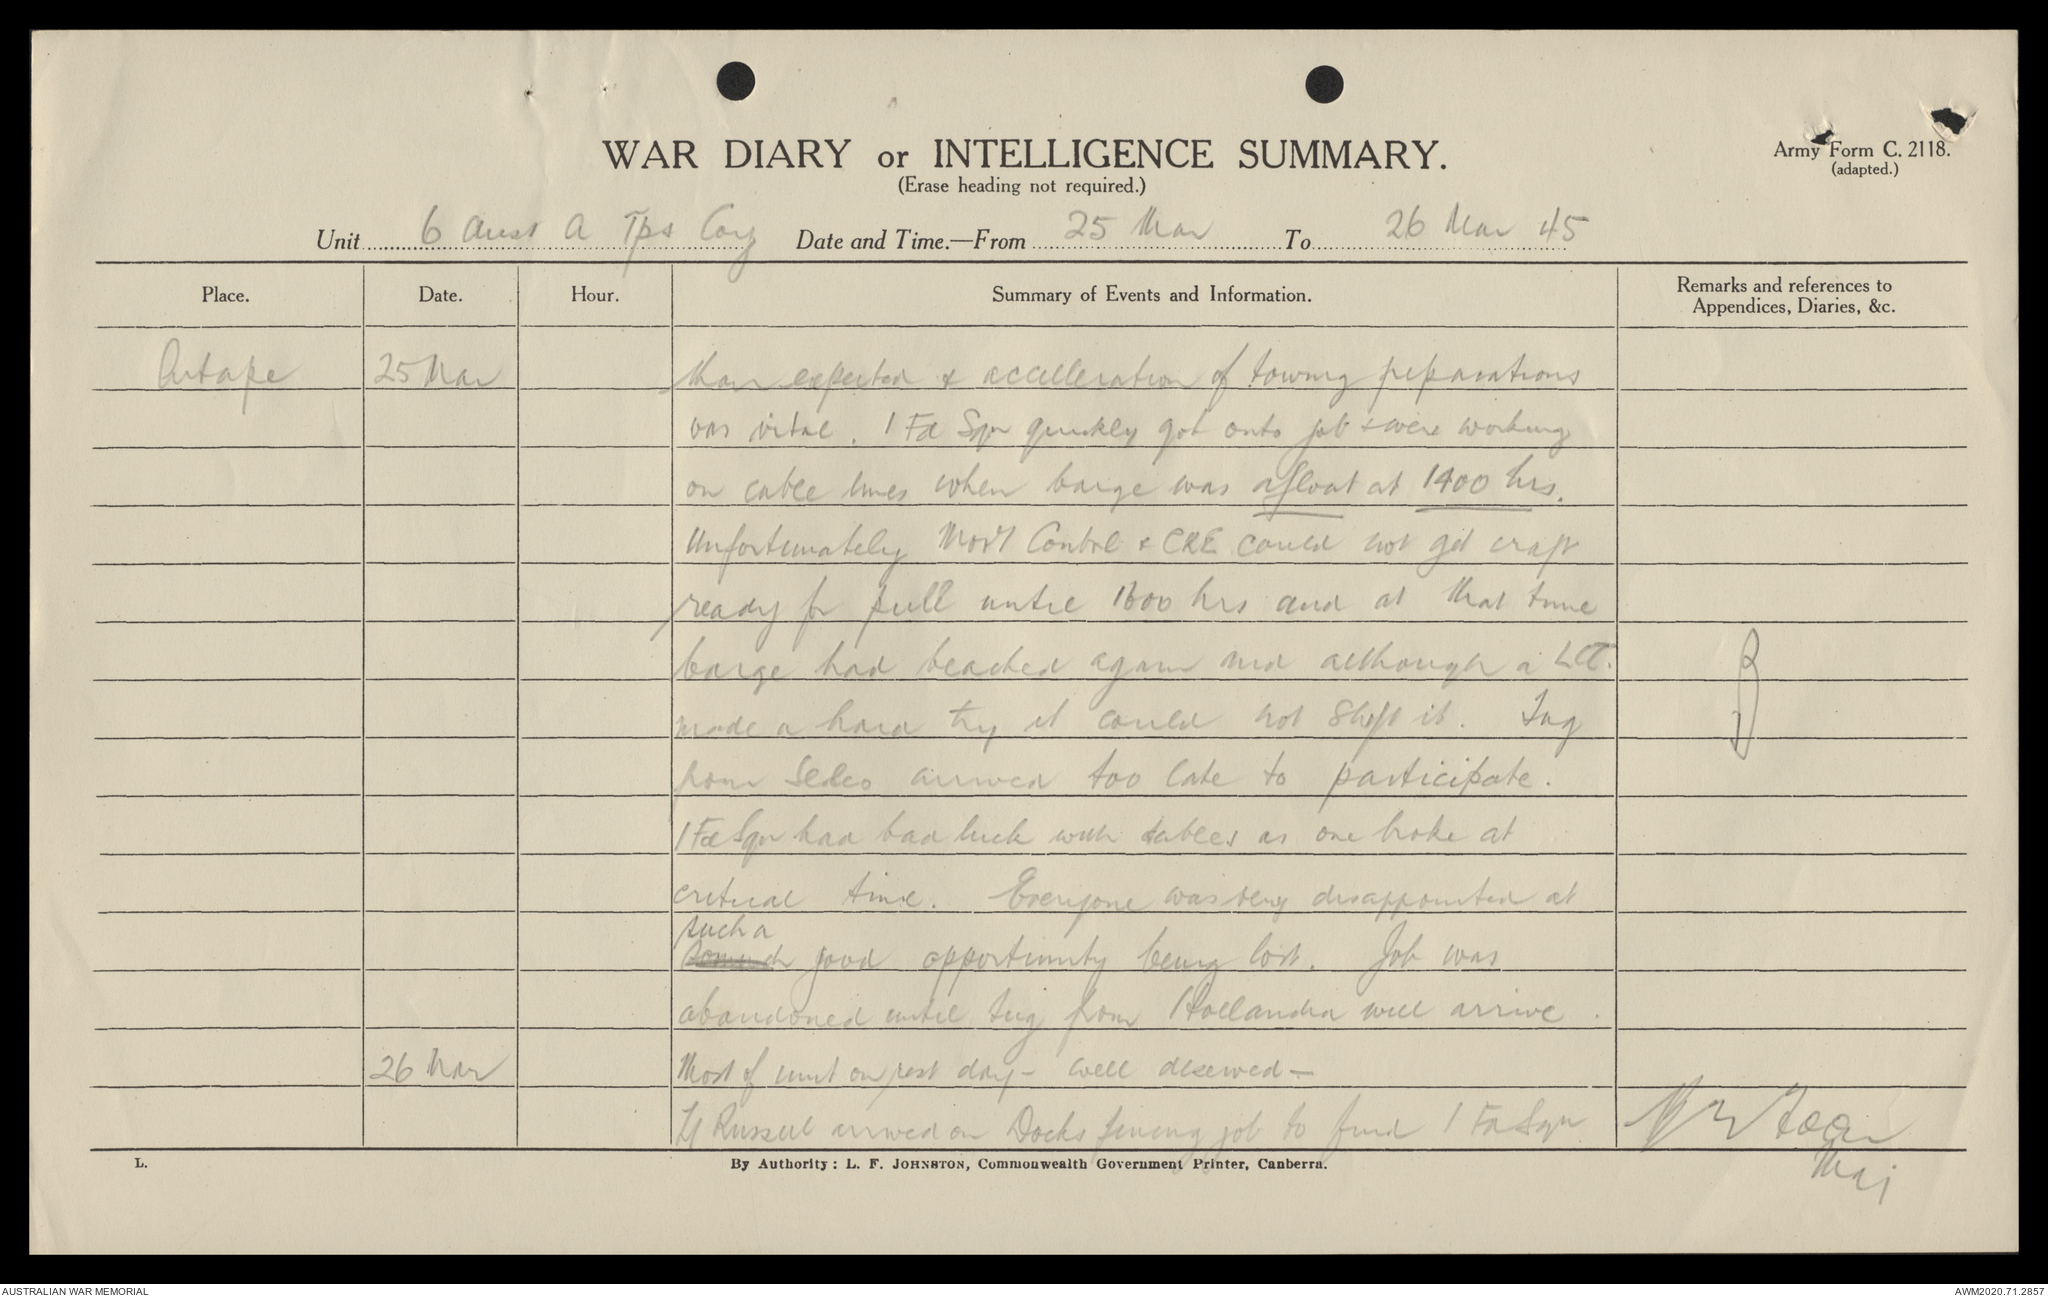 WAR DIARY or INTELLIGENCE SUMMARY.
(Erase heading not required.)
Army Form C. 2118.
(adapted.)
Unit 6 Aust A Tps Coy Date and Time.—From 25 Mar To 26 Mar 45
Place. Date. Hour. Summary of Events and Information. Remarks and references to
Appendices, Diaries, &c.
Aitape 25 Mar than expected & accelleration of towing preparations
was vital. 1 Fd Sqn quickly got onto job & were working
on cable lines when barge was afloat at 1400 hrs.
Unfortunately Mov't Control & CRE could not get craft
ready for pull until 1600 hrs and at that time
barge had beached again and although a LCT.
made a hard try it could not shift it. Tug
from Seleo arrived too late to participate.
1 Fd Sqn had bad luck with cables as one broke at
critical time. Everyone was very disappointed at
such a
good opportunity being lost. Job was
abandoned until tug from Hollandia will arrive.
26 Mar Most of unit on rest day - well deserved -
Lt Russell arrived on Docks job to find 1 Fd Sqn
Maj
L.
By Authority: L. F. JOHNSTON, Commonwealth Government Printer, Canberra.
AUSTRALIAN WAR MEMORIAL
AWM2020.71.2857